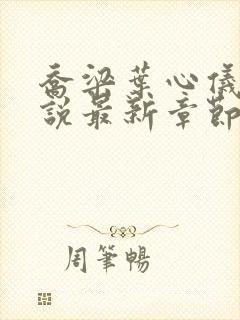 喬梁葉心儀
說最新章節
周筆暢